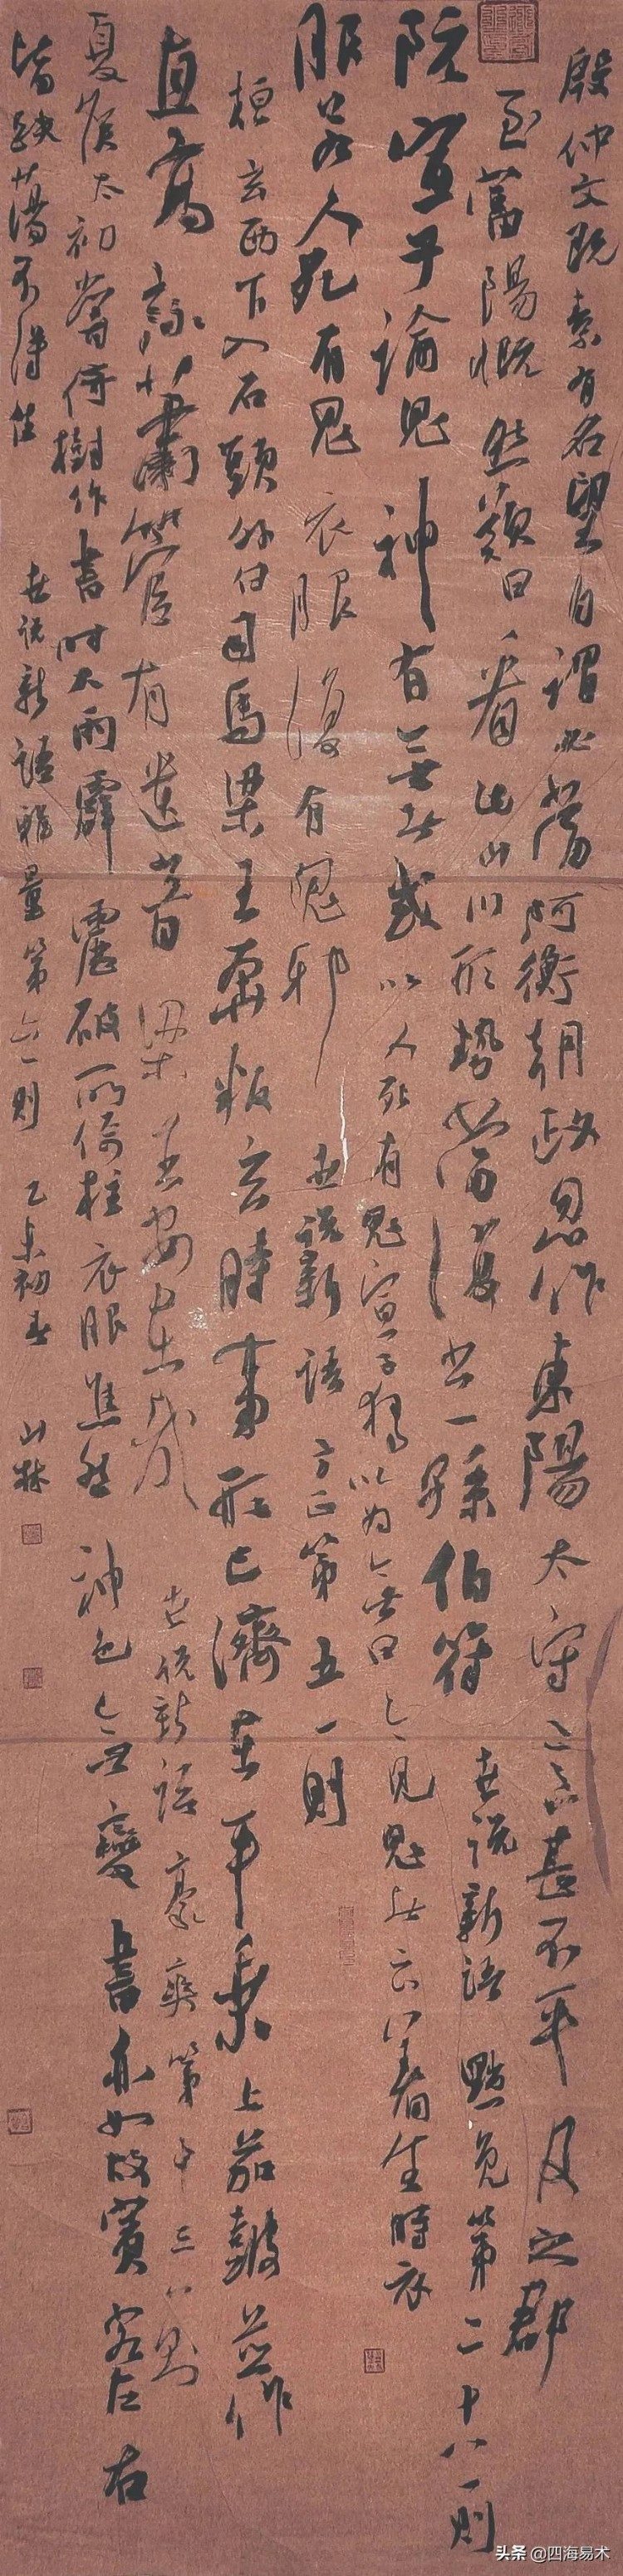 殷仲文既素有名望自謂必當阿衡朝政忽作東陽太守意甚不平及之郡
至富陽慨然嘆曰看此山川形勢當復出一孫伯符 世说新语 黜免第二十八一則
阮宣子論鬼神有無者或以人死有鬼宣子獨以为無曰今見鬼者云着生時衣
服若人死有鬼衣服復有鬼邪 世说新语方正第五一則
桓玄西下入石頭外白司馬梁王奔叛玄時事形已濟在平乘上笳鼓並作
直高詠云簫管有遺音梁王安在哉 世说新语豪爽第十三一则
夏侯太初嘗倚樹作書時大雨霹靂破所倚柱衣服焦然神色無變書亦如故賓客左右
皆跌蕩不得住 世说新語雅量第六一則 乙未初春 山林
头条 @四海易术